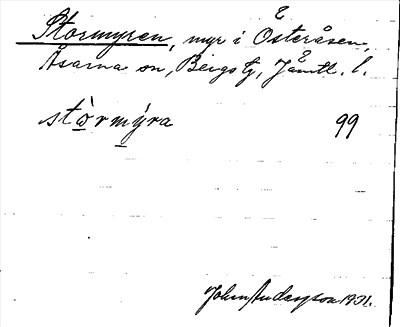 Stormyren, myr i Österåsen,
Åsarna sn, Bergs tg, Jämtl. l.
stòrmýra 99
John Andersson 1931.